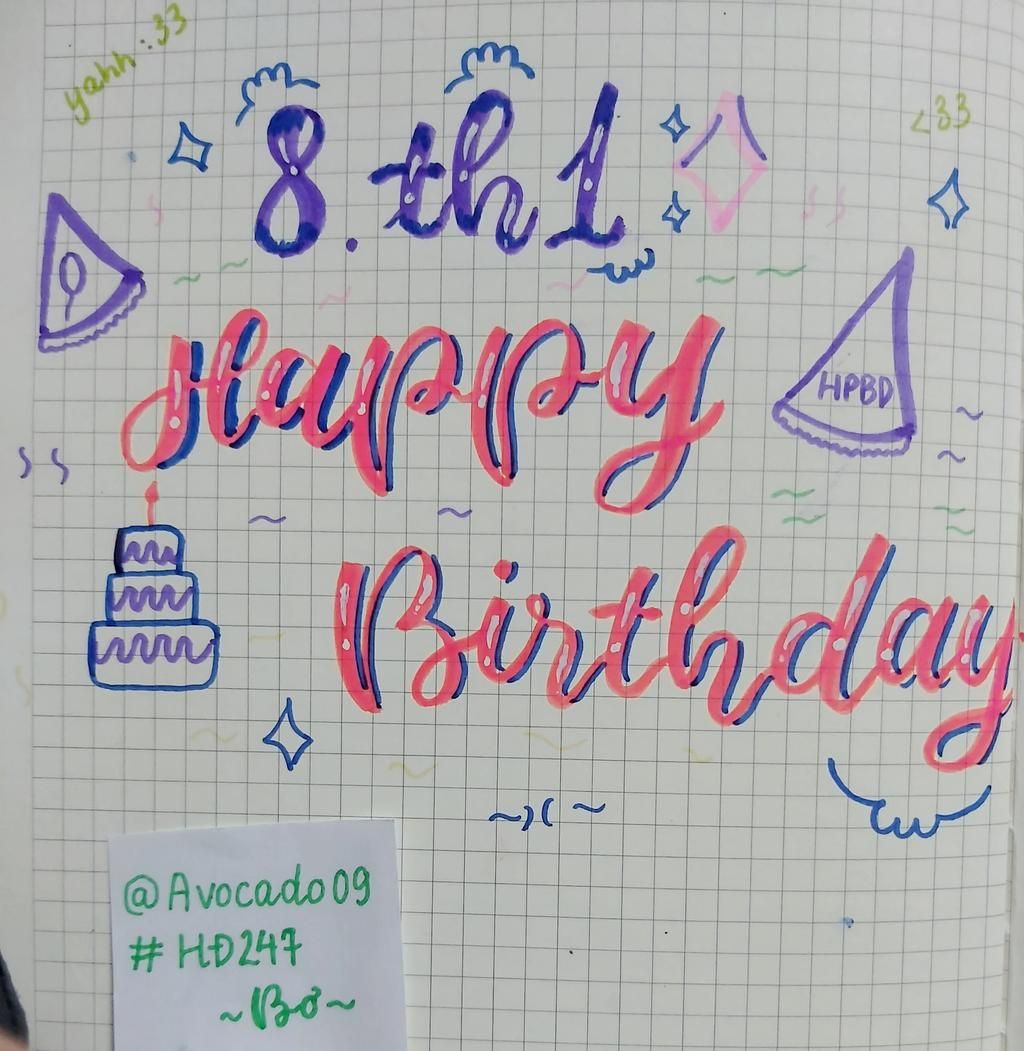 yahh :33
<33
8.th1
Happy
HPBD
Birthday
~)(~
@Avocado09
# HĐ247
~Bơ~